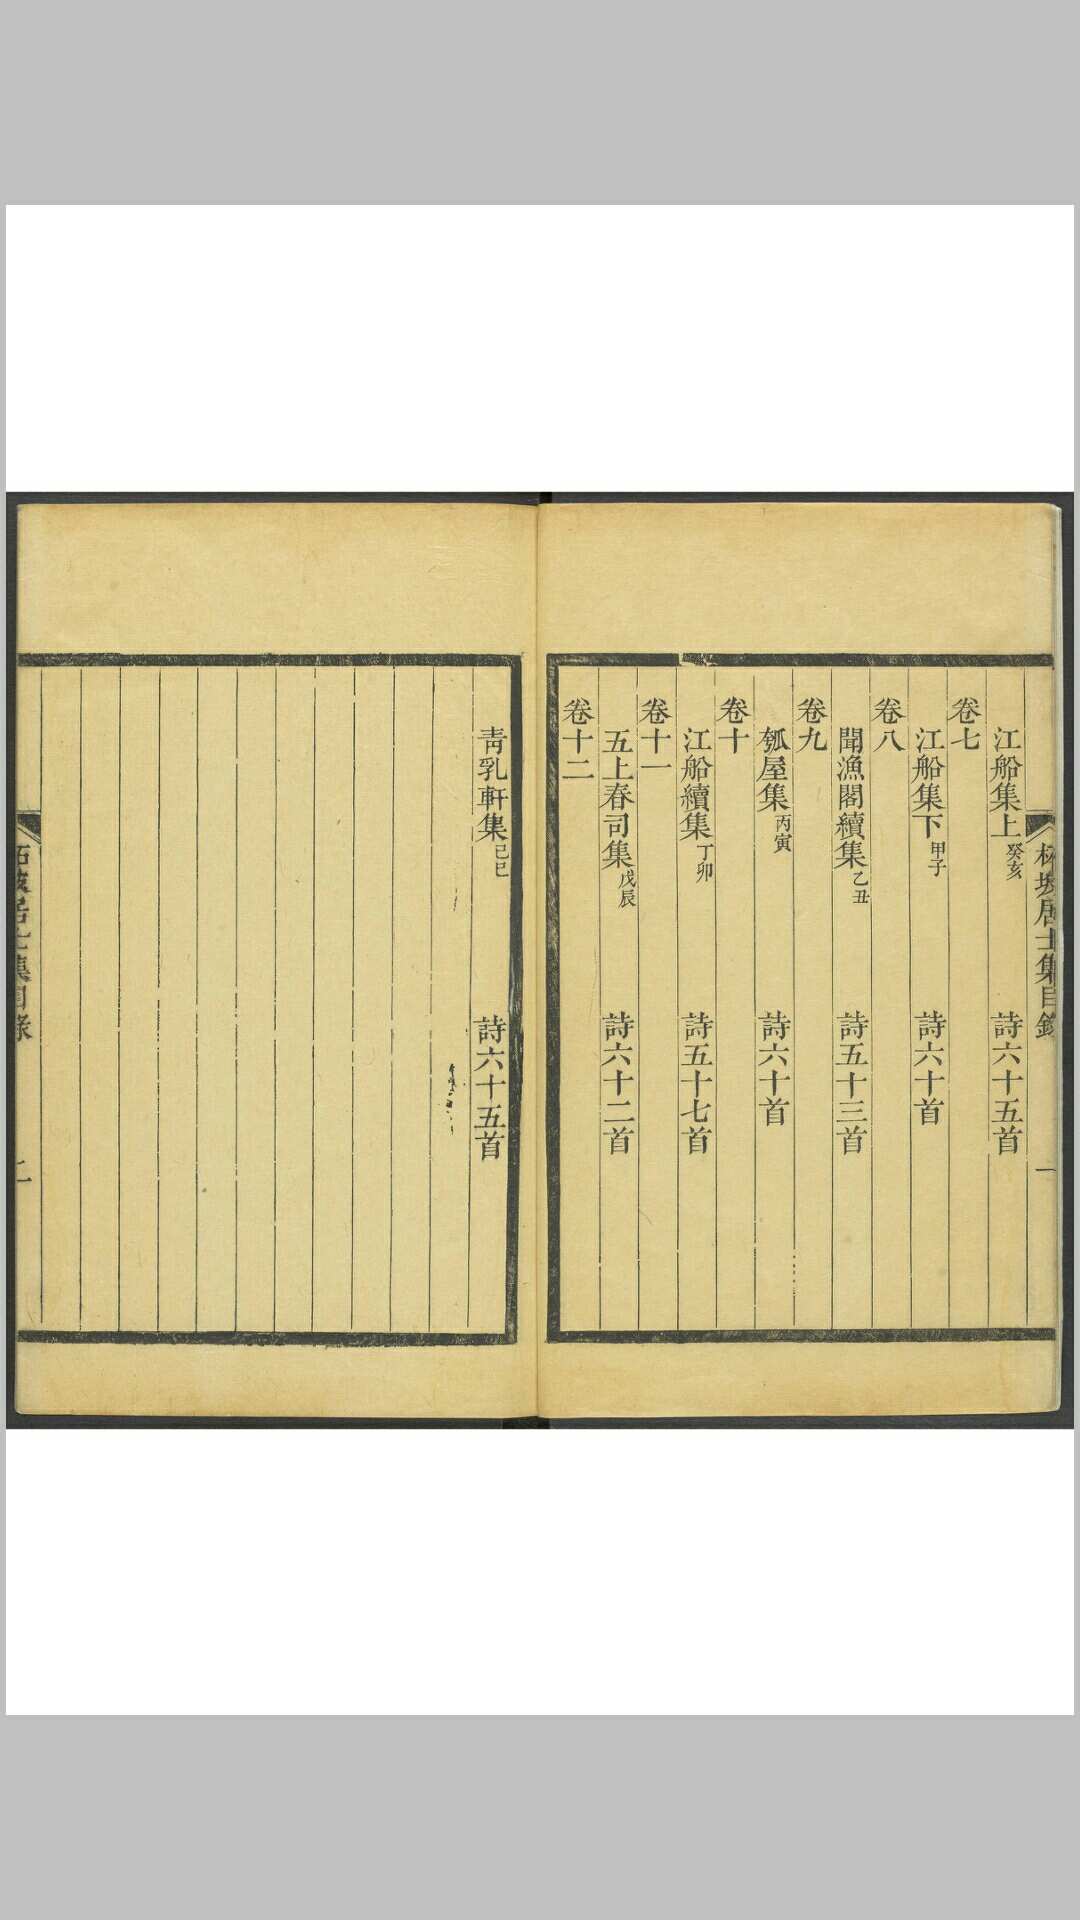 柘坡居士集目錄 一
江船集上 癸亥 詩六十五首
卷七
江船集下 甲子 詩六十首
卷八
聞漁閣續集 乙丑 詩五十三首
卷九
瓠屋集 丙寅 詩六十首
卷十
江船續集 丁卯 詩五十七首
卷十一
五上春司集 戊辰 詩六十二首
卷十二
靑乳軒集 己巳 詩六十五首
居士集目錄 二